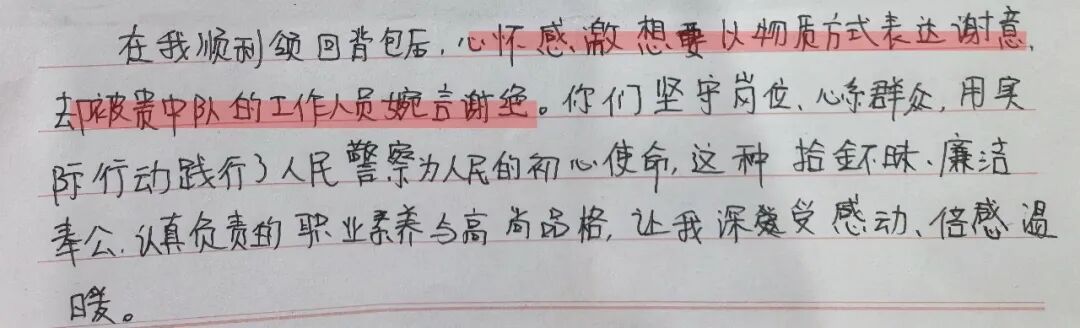 在我顺利领回背包后,心怀感激想要以物质方式表达谢意,
却被贵中队的工作人员婉言谢绝。你们坚守岗位、心系群众,用实
际行动践行了人民警察为人民的初心使命,这种拾金不昧、廉洁
奉公、认真负责的职业素养与高尚品格,让我深受感动、倍感温
暖。